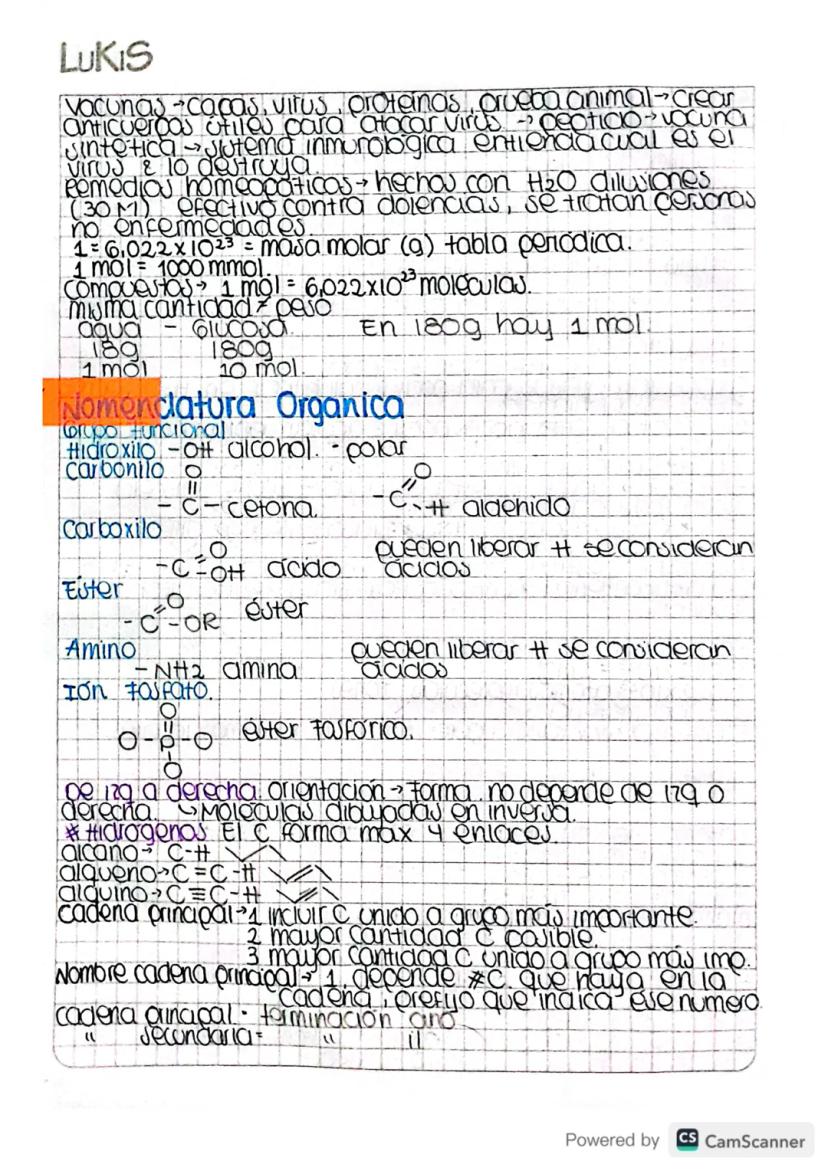 LUKIS
Vacunas → cacas, virus, proteínas, prueba animal → crear
anticuerpos útiles para atacar virus → peptido → vacuna
sintética → sistema inmurológica entienda cual es el
virus & lo destruya.
Remedios homeopáticos → hechos con H2O dilusiones
(30M) efectivo contra dolencias, se tratan personas
no enfermedades.
1 = 6,022 x 10²³ = masa molar (g) tabla periódica.
1 mol = 1000 mmol.
Compuestos → 1 mol = 6,022x10²³ moléculas.
misma cantidad ≠ peso
agua - Glucosa En 180g hay 1 mol.
18g 180g
1 mol 10 mol
Nomenclatura Organica
Grupo funcional
Hidroxilo -OH alcohol. - polar
Carbonilo O O
- C - cetona. - C - H aldehido
Carboxilo
O pueden liberar H se consideran
- C - OH ácido ácidos
Éster
O
- C - OR éster
Amino pueden liberar H se consideran
- NH2 amina ácidos
Ión fosfato.
O
O - P - O éster fosfórico.
O
De izq a derecha. Orientación → forma, no depende de izq o
derecha. ↳ Moléculas dibujadas en inversa.
# Hidrógenos El C forma max 4 enlaces
alcano → C-H
alqueno → C=C-H
alquino → C≡C-H
Cadena principal → 1 incluir C unido a grupo más importante.
2 mayor cantidad C posible.
3 mayor cantidad C unido a grupo más imp.
Nombre cadena principal → 1. depende #C que haya en la
cadena, prefijo que indica ese numero.
cadena principal · terminación ano
" secundaria = " il
Powered by CS CamScanner